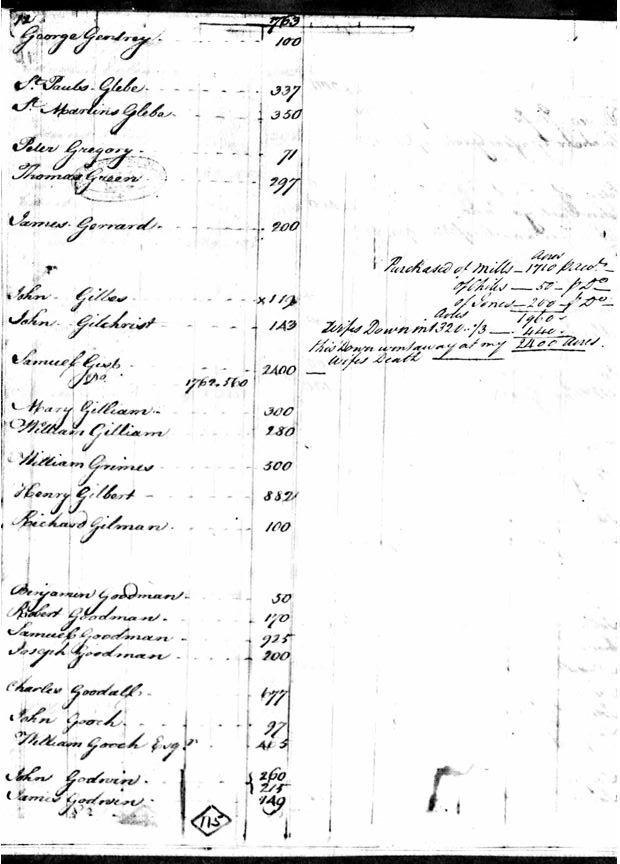 12 763
George Gentrey 100
St. Pauls Glebe 337
St. Martins Glebe 350
Peter Gregory 71
Thomas Green 297
James Gerrard 200
Acres
Purchased of Mills 1710
of Chiles 50 Do
John Gilles x 119
of Jones 200 Do
Acres 1960
John Gilchrist 143
Wifes Down in 1320 1/3 440
this Down went away at my 2400 Acres
Wifes Death
Samuel Gist 2400
Do 1762.560
Mary Gilliam 300
William Gilliam 280
William Grimes 500
Henry Gilbert 882
Richard Gilman 100
Benjamin Goodman 50
Robert Goodman 170
Samuel Goodman 925
Joseph Goodman 200
Charles Goodall 677
John Gooch 97
William Gooch Esqr
John Godwin 260
215
James Godwin 149
115